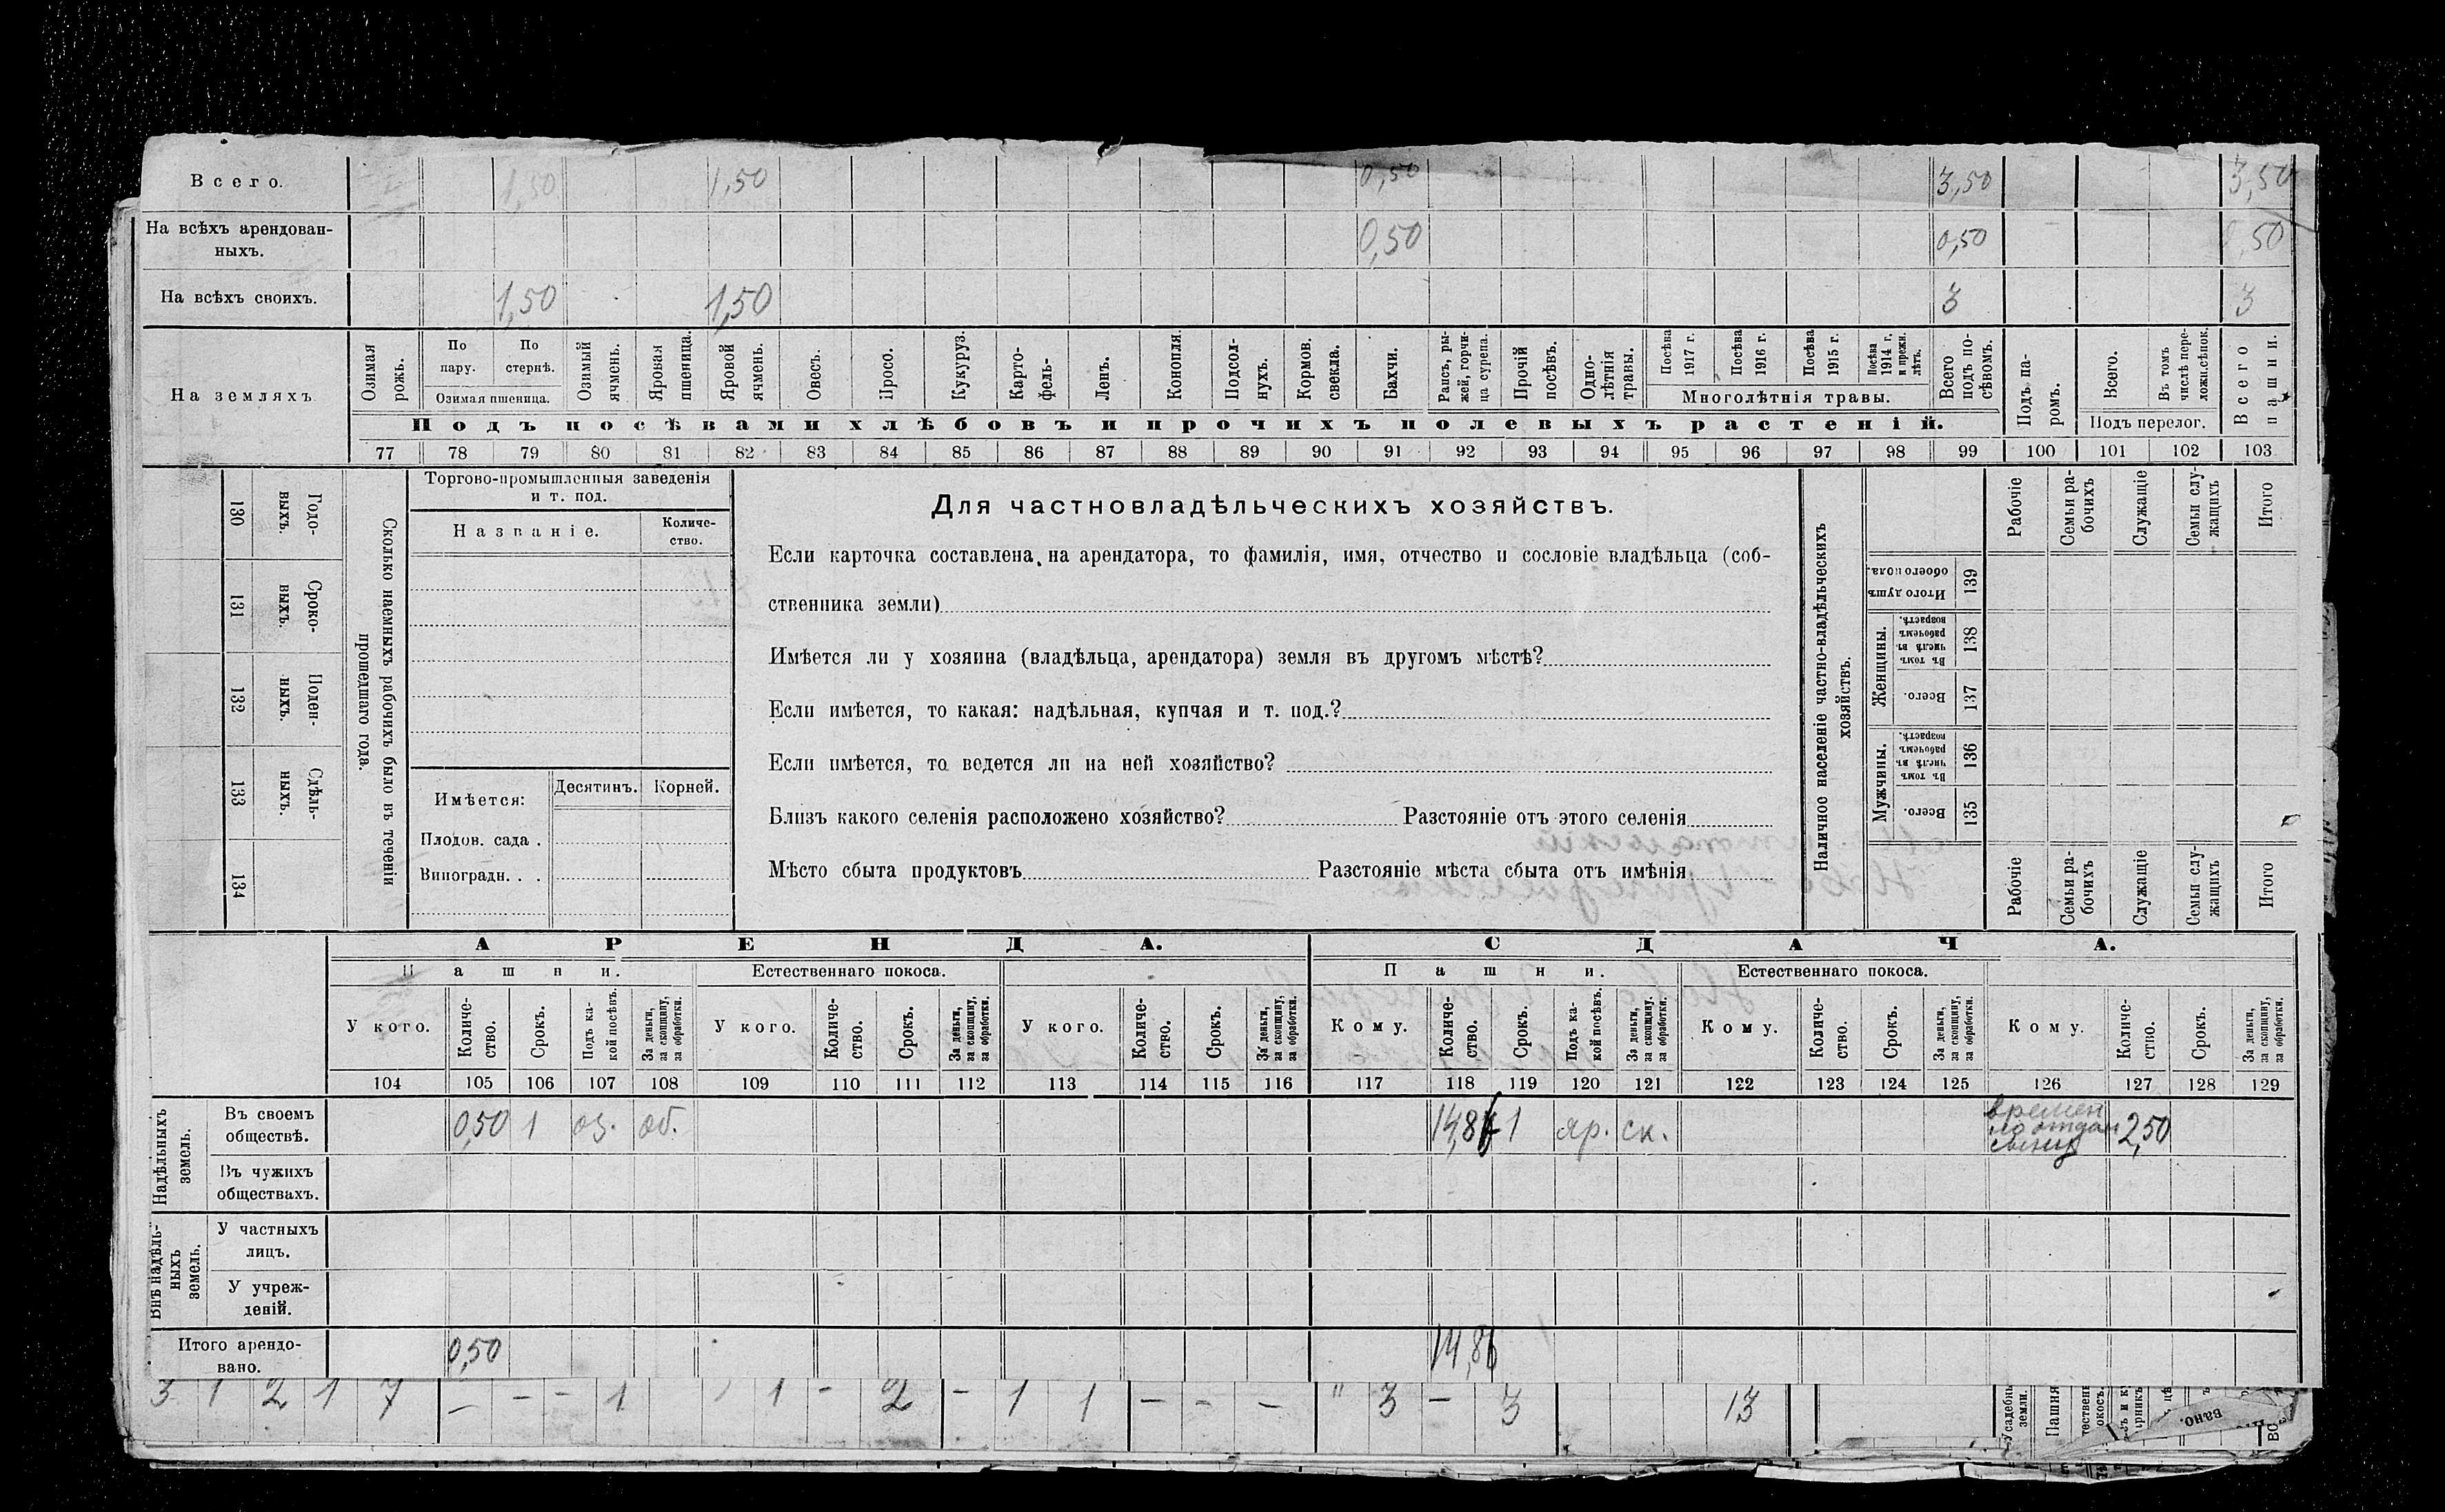 Всего. 1,50 1,50 0,50 3,50 3,50
На всѣхъ арендован-
ныхъ. 0,50 0,50 0,50
На всѣхъ своихъ. 1,50 1,50 3 3
На земляхъ
Озимая
рожь.
По
пару.
По
стернѣ.
Озимая пшеница.
Озимый
ячмень.
Яровая
пшеница.
Яровой
ячмень.
Овесъ.
Просо.
Кукуруз.
Карто-
фель-
Ленъ.
Конопля.
Подсол-
нухъ.
Кормов.
свекла.
Бахчи.
Рапсъ, ры-
жей, горчи-
ца сурепа.
Прочій
посѣвъ.
Одно-
лѣтнія
травы.
Посѣва
1917 г.
Посѣва
1916 г.
Посѣва
1915 г.
Посѣва
1914 г.
и прежн.
лѣтъ.
Многолѣтнія травы.
Всего
подъ по-
сѣвомъ.
Подъ па-
ромъ.
Всего.
Въ томъ
числѣ пере-
ложи.сѣнок.
Подъ перелог.
Всего
пашни.
Подъ посѣвами хлѣбовъ и прочихъ полевыхъ растеній.
77 78 79 80 81 82 83 84 85 86 87 88 89 90 91 92 93 94 95 96 97 98 99 100 101 102 103
130
Годо-
выхъ.
131
Сроко-
выхъ.
132
Поден-
ныхъ.
133
Сдѣль-
ныхъ.
134
Сколько наемныхъ рабочихъ было въ теченіи
прошедшаго года.
Торгово-промышленныя заведенія
и т. под.
Названіе.
Количе-
ство.
Имѣется:
Десятинъ. Корней.
Плодов. сада .
Виноградн. . .
Для частновладѣльческихъ хозяйствъ.
Если карточка составлена на арендатора, то фамилія, имя, отчество и сословіе владѣльца (соб-
ственника земли)
Имѣется ли у хозяина (владѣльца, арендатора) земля въ другомъ мѣстѣ?
Если имѣется, то какая: надѣльная, купчая и т. под.?
Если имѣется, то ведется ли на ней хозяйство?
Близъ какого селенія расположено хозяйство? Разстояніе отъ этого селенія
Мѣсто сбыта продуктовъ Разстояніе мѣста сбыта отъ имѣнія
Наличное населеніе частно-владѣльческихъ
хозяйствъ.
Рабочіе
Семьи ра-
бочихъ
Служащіе
Семьи слу-
жащихъ
Итого
Итого душъ
обоего пола.
139
Женщины.
Въ томъ
числѣ въ
рабочемъ
возрастѣ.
138
Всего.
137
Мужчины.
Въ томъ
числѣ въ
рабочемъ
возрастѣ.
136
Всего.
135
Рабочіе
Семьи ра-
бочихъ
Служащіе
Семьи слу-
жащихъ
Итого
АРЕНДА. СДАЧА.
Пашни. Естественнаго покоса. Пашни. Естественнаго покоса.
У кого.
Количе-
ство.
Срокъ.
Подъ ка-
кой посѣвъ.
За деньги,
за скопщину,
за обработки.
У кого.
Количе-
ство.
Срокъ.
За деньги,
за скопщину,
за обработки.
У кого.
Количе-
ство.
Срокъ.
За деньги,
за скопщину,
за обработки.
Кому.
Количе-
ство.
Срокъ.
Подъ ка-
кой посѣвъ.
За деньги,
за скопщину.
за обработки.
Кому.
Количе-
ство.
Срокъ.
За деньги,
за скопщину,
за обработки.
Кому.
Количе-
ство.
Срокъ.
За деньги,
за скопщину,
за обработки.
104 105 106 107 108 109 110 111 112 113 114 115 116 117 118 119 120 121 122 123 124 125 126 127 128 129
Надѣльныхъ
земель.
Въ своемъ
обществѣ.
0,50 1 оз. об. 1 яр. ск.
времен
но отдан
сыну
2,50
Въ чужихъ
обществахъ.
Внѣ надѣль-
ныхъ
земель.
У частныхъ
лицъ.
У учреж-
деній.
Итого арендо-
вано.
0,50 14,86
3 1 2 1 7 — - - 1 1 - 2 - 1 1 — - — " 3 — 3 13
Усадебн
земли.
Пашня
вано.